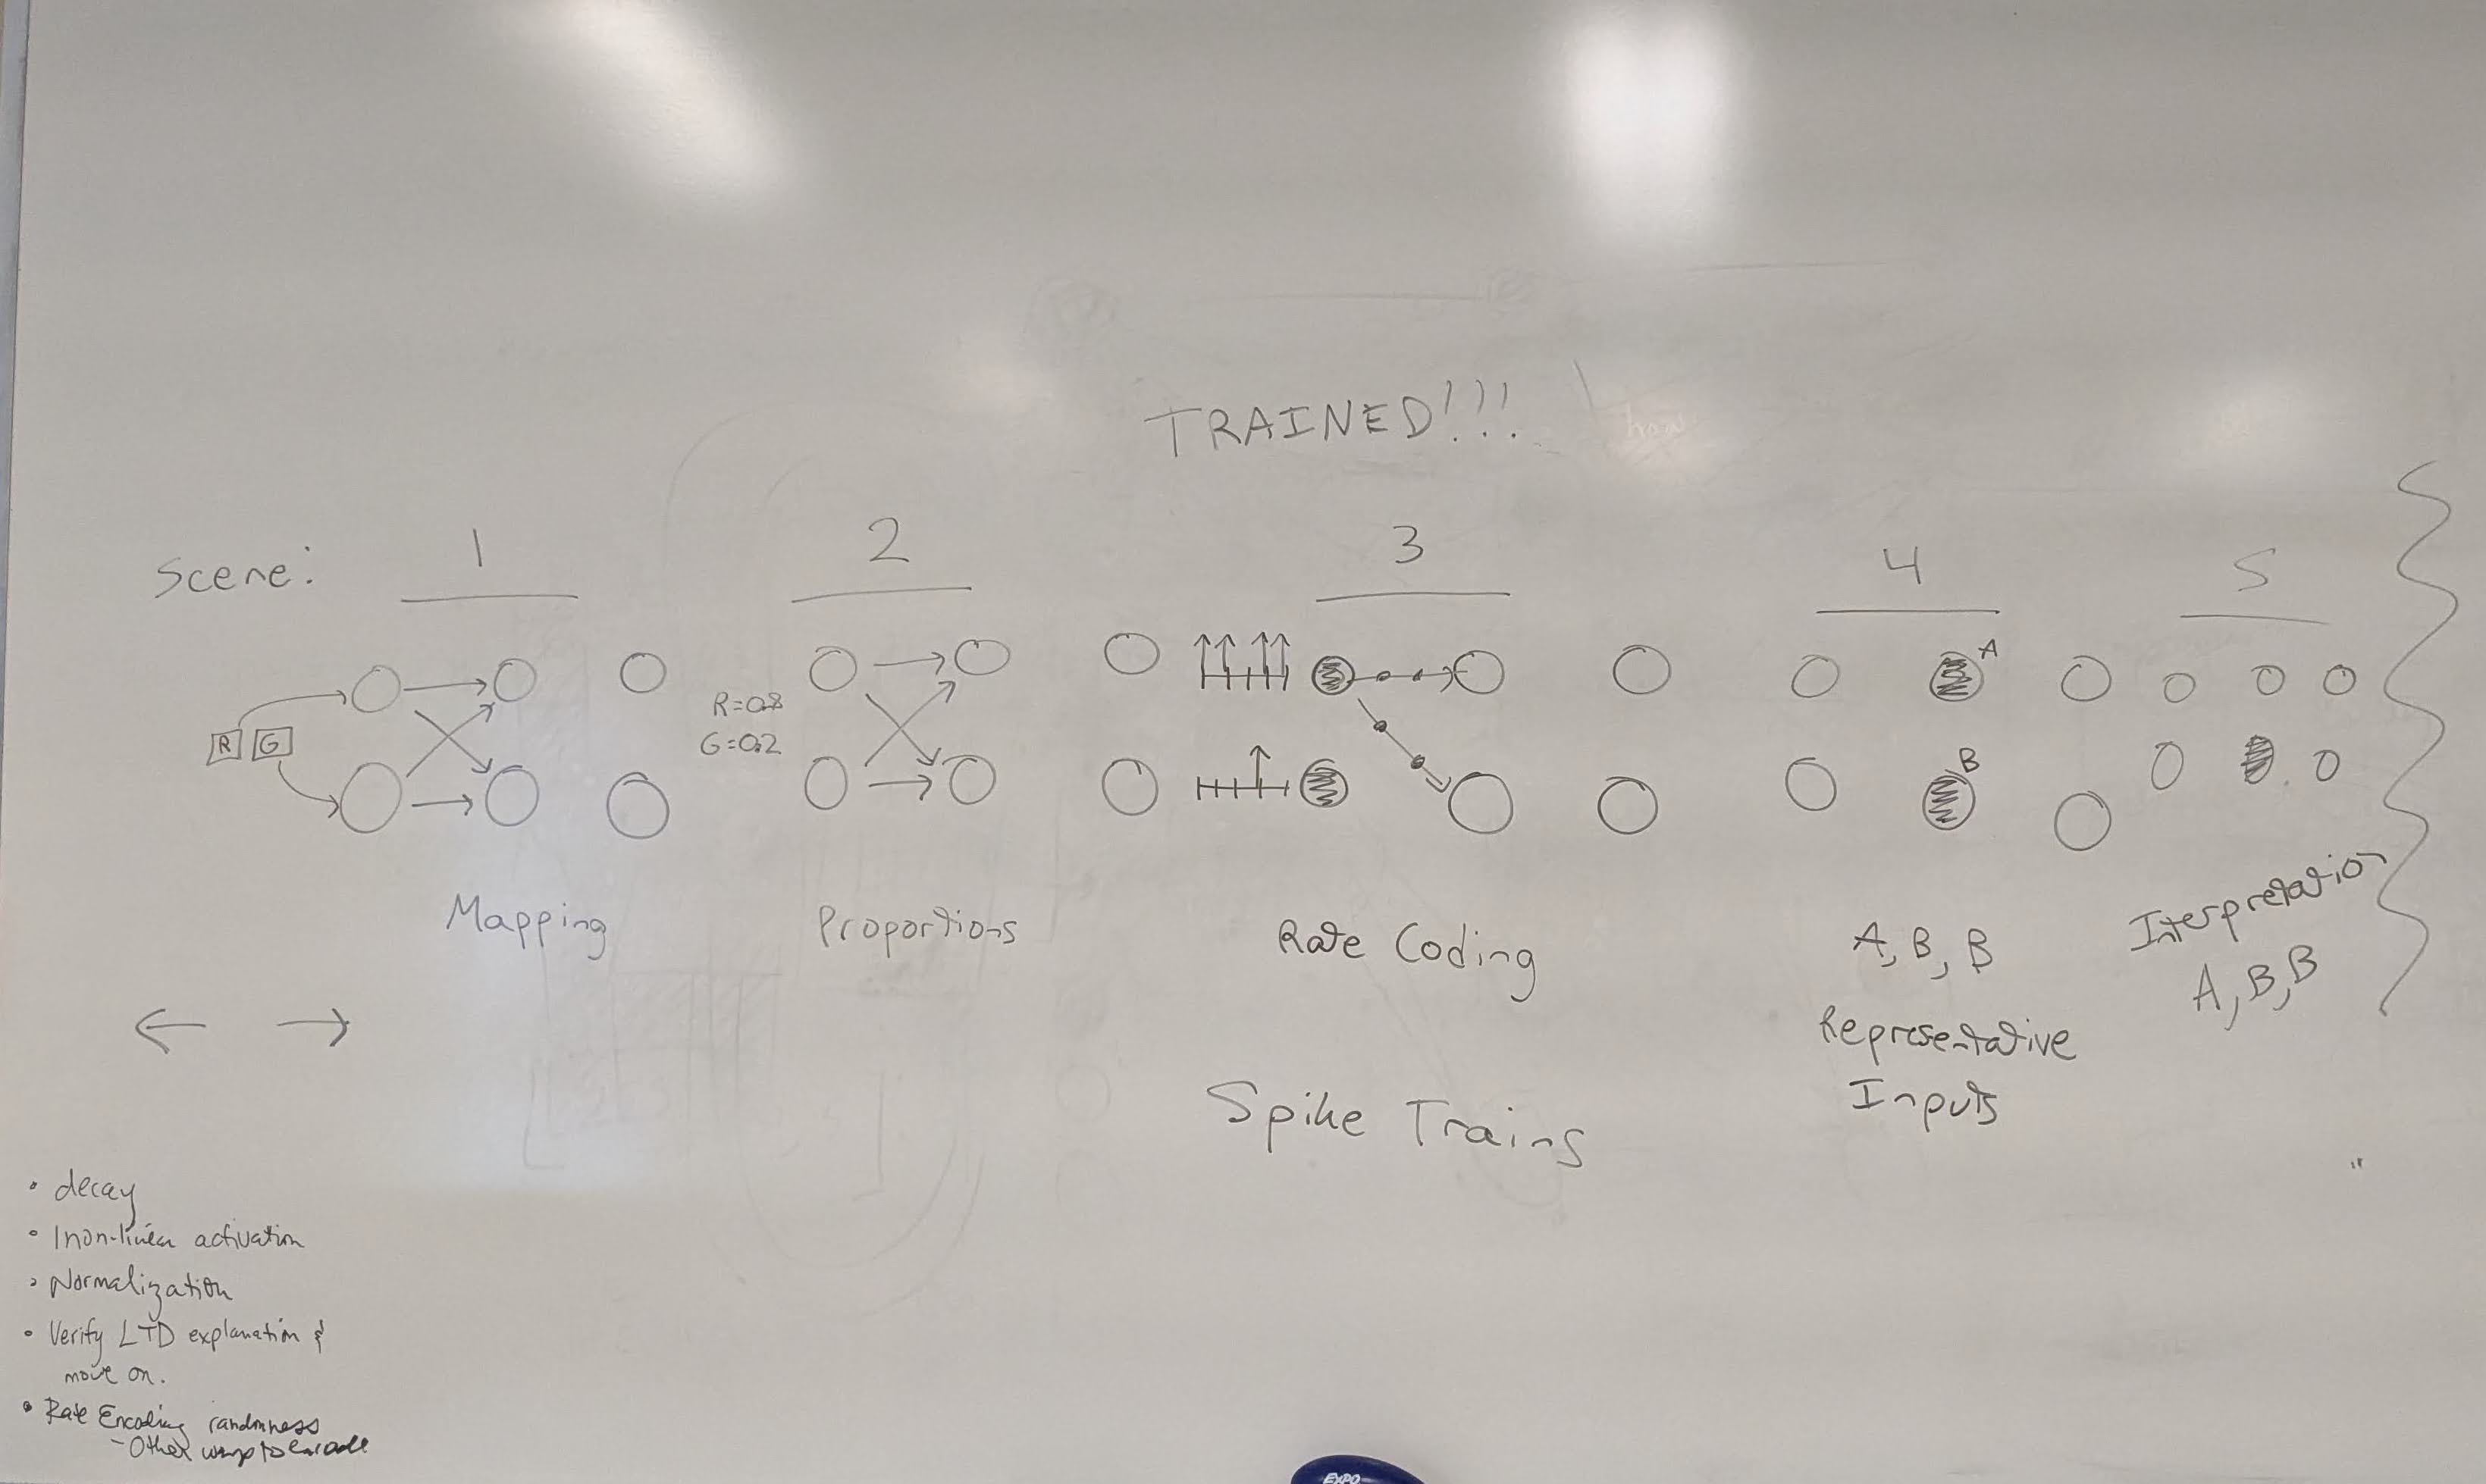 TRAINED!!!
Scene: 1 2 3 4 5
A
R G
R=0.8
G=0.2
B
Mapping
Proportions
Rate Coding
Spike Trains
A, B, B
Representative
Inputs
Interpretation
A, B, B
• decay
• Inon-linear activation
• Normalization
• Verify LTD explanation &
move on.
• Rate Encoding randomness
- Other ways to encode
EXPO